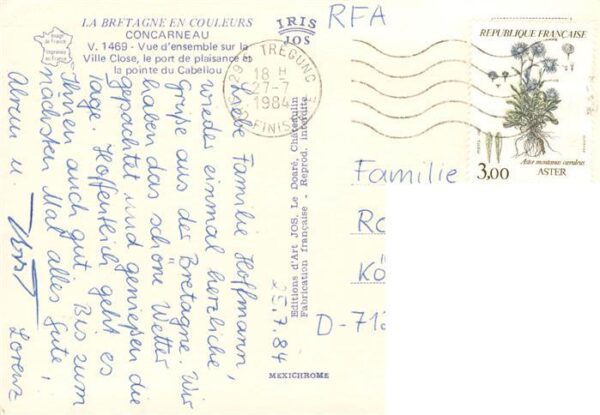 LA BRETAGNE EN COULEURS
CONCARNEAU
V. 1469 - Vue d'ensemble sur la
Ville Close, le port de plaisance et
la pointe du Cabellou
Image de France
Imprimée en France
IRIS
JOS
29 TREGUNC
18 H
27-7
1984
FINIST
RFA
REPUBLIQUE FRANÇAISE
POSTES
Aster montanus cæruleus
3,00 ASTER
Liebe Familie Hoffmann,
wieder einmal herzliche
Grüße aus der Bretagne. Wir
haben das schöne Wetter
gepachtet und genießen die
Tage. Hoffentlich geht es
Ihnen auch gut. Bis zum
nächsten Mal alles Gute,
u.
Lorenz
25.7.84
Editions d'Art JOS, Le Doaré, Châteaulin
Fabrication française - Reprod. interdite
MEXICHROME
Familie
Ro
Kö
D-712